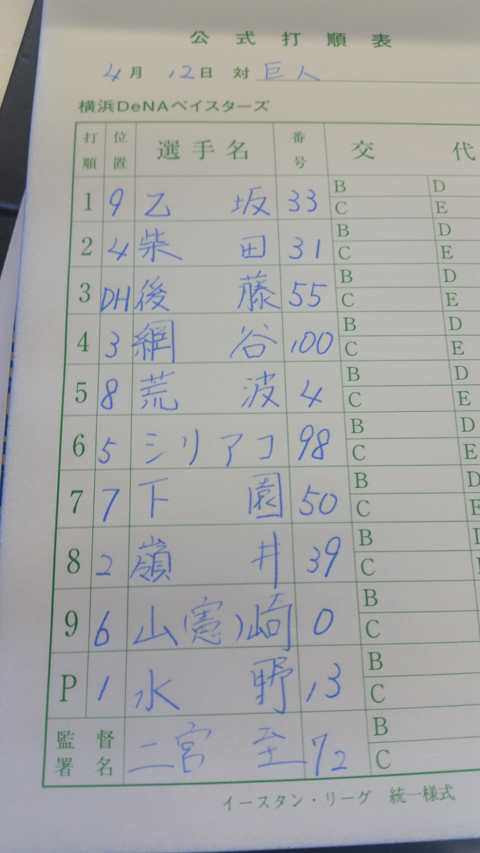 公式打順表
4月 12日 対 巨人
横浜DeNAベイスターズ
打順 位置 選手名 番号 交代
1 9 乙坂 33 B D C E
2 4 柴田 31 B D C E
3 DH 後藤 55 B D C E
4 3 網谷 100 B D C E
5 8 荒波 4 B D C E
6 5 シリアコ 98 B D C E
7 7 下園 50 B D C E
8 2 嶺井 39 B D C
9 6 山(憲)崎 0 B C
P 1 水野 13 B C
監督署名 二宮至 72 B C
イースタン・リーグ 統一様式